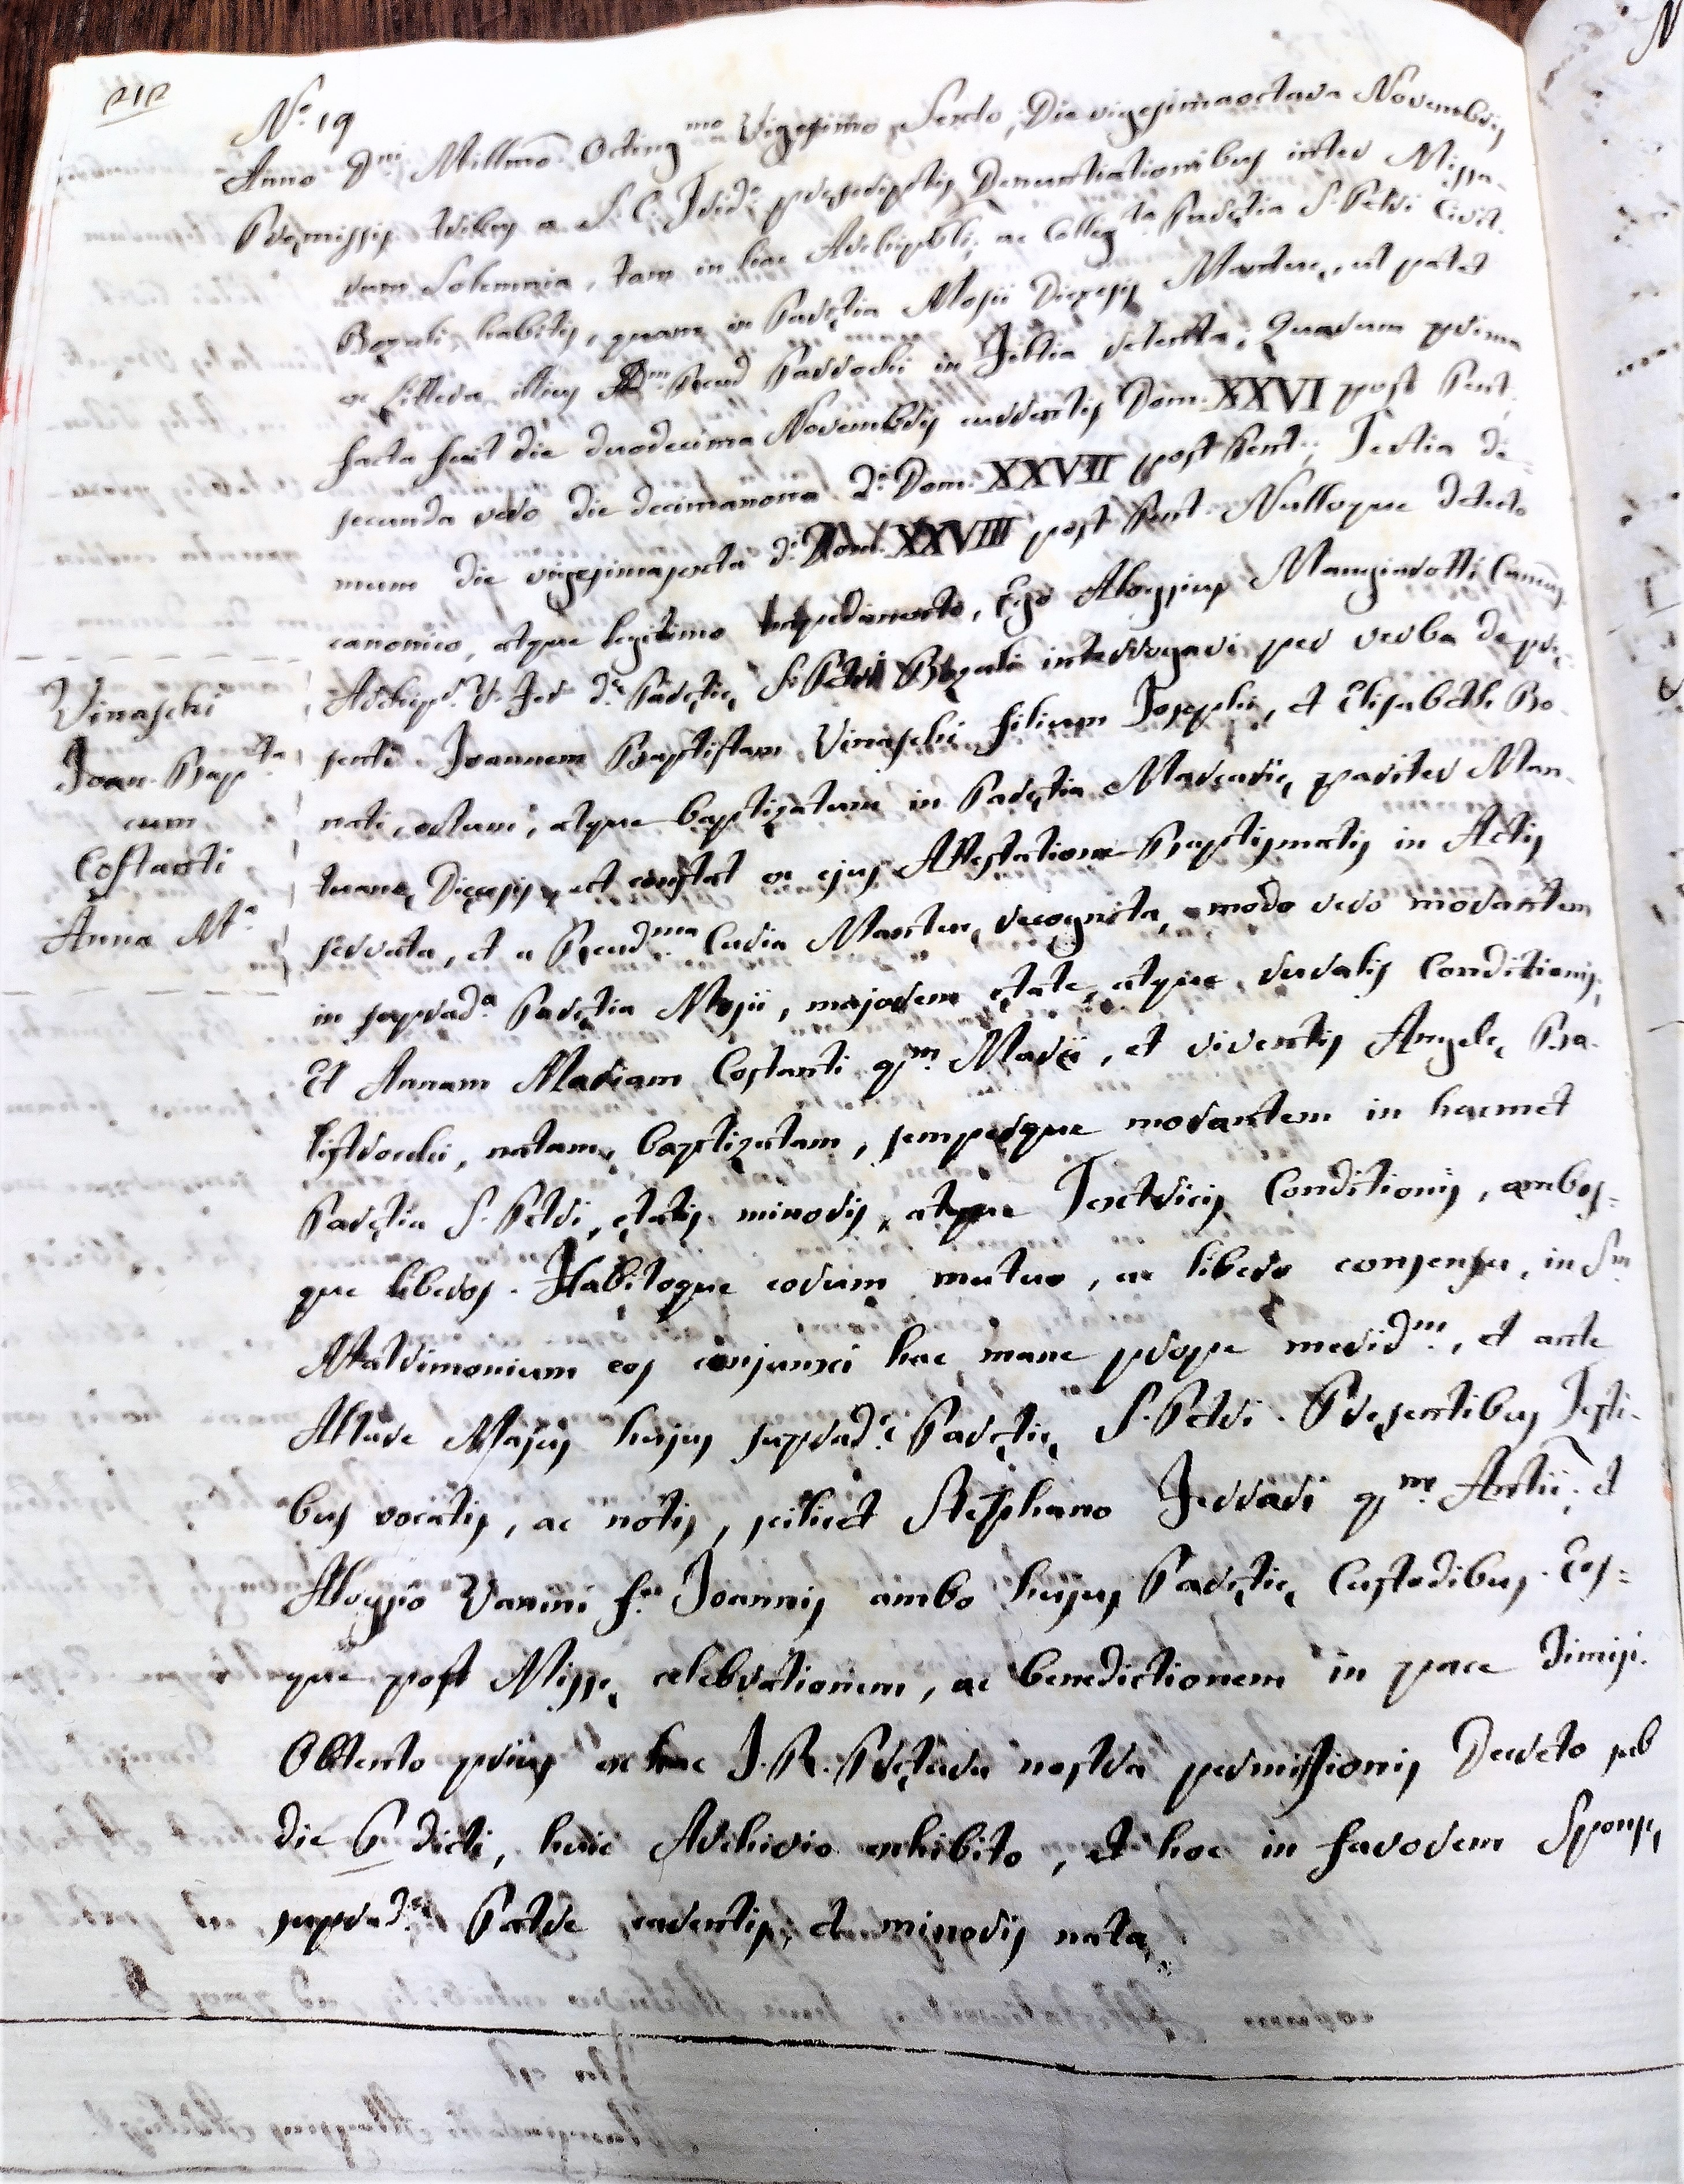 N.º 19
Anno Dñi Millmo Octingmo Vigesimo Sexto, Die vigesimaoctava Novembris
Pręmissis tribus a S. C. Trid.º pręscriptis Denuntiationibus inter Missa-
rum Solemnia, tam in hac Archiprbli, ac Collegta Parętia S. Petri Civit.
Bozuli habitis, quam in Parętia Mosii Dięcesis Mantuę, ut patet
ex Littera illius Rend Parrochi in Filtia retenta; Quarum prima
facta fuit die duodecima Novembris currentis Dom. XXVI post Pent.
secunda vero die decimanona d.ª Dom. XXVII post Pent.; Tertia de-
mum die vigesimasexta d.ª Dom. XXVIII post Pent. Nulloque detecto
canonico, atque legitimo Impedimento, Ego Aloysius Mangiarotti Canus
Archipr. V. For d.ę Parętię S. Petri Bozuli interrogavi per verba de prę-
senti Joannem Baptistam Vinaschi filium Josephi, et Elisabeth Bo-
nati, ortum, atque baptizatum in Parętia Marcarię, pariter Man-
tuanę Dięcesis, ut constat ex ejus Attestatione Baptismatis in Actis
servata, et a Rendma Curia Mantuę recognita, modo vero morantem
in suprad.ª Parętia Mosii, majorem ętate, atque ruralis Conditionis;
Et Annam Mariam Costanti qm. Marii, et viventis Angelę Ba-
listrochi, natam, baptizatam, semperque morantem in hacmet
Parętia S. Petri, ętatis minoris, atque Textricis Conditionis, ambos-
que liberos. Habitoque eorum mutuo, ac libero consensu, in Sm
Matrimonium eos conjunxi hac mane prope meridm., et ante
Altare Majus hujus suprad.ę Parętię S. Petri. Pręsentibus Testi-
bus vocatis, ac notis, scilicet Stephano Ferrari qm. Antii; et
Aloysio Vanini f.º Joannis ambo hujus Parętię Custodibus. Eos-
que post Missę celebrationem, ac benedictionem in pace dimisi.
Obtento prius ex hac I. R. Prętura nostra permissionis Decreto sub
die 6 dicti, huic Archivio exhibito, et hoc in favorem Sponsę
suprad.ę Patre carentis, et minoris natu.
Vinaschi
Joan. Bapta
cum
Costanti
Anna M.ª